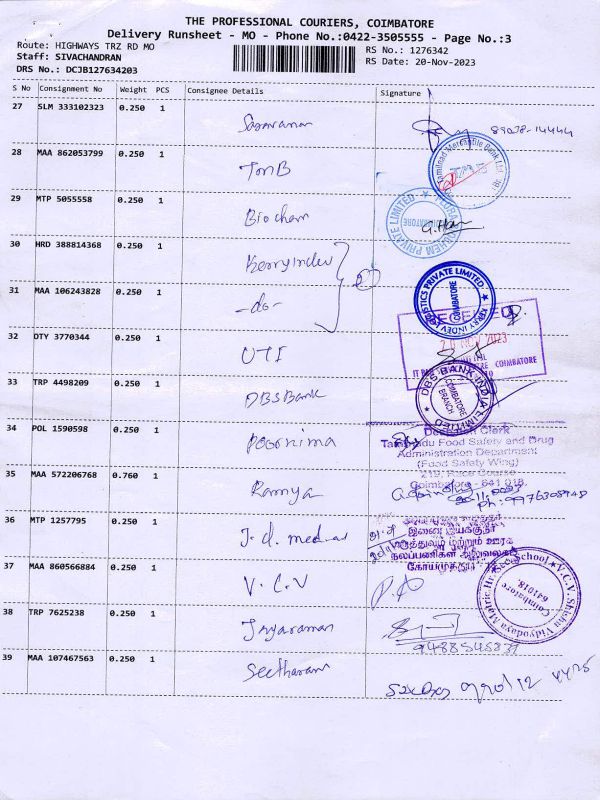 THE PROFESSIONAL COURIERS, COIMBATORE
Delivery Runsheet - MO - Phone No.:0422-3505555 - Page No.:3
Route: HIGHWAYS TRZ RD MO
RS No.: 1276342
Staff: SIVACHANDRAN
RS Date: 20-Nov-2023
DRS No.: DCJB127634203
S No Consignment No Weight PCS Consignee Details Signature
27 SLM 333102323 0.250 1
28 MAA 862053799 0.250 1 TMB
Tamilnad Mercantile Bank Ltd
29 MTP 5055558 0.250 1 Biochem
PRIVATE LIMITED
COIMBATORE
30 HRD 388814368 0.250 1 Kerry Indev
KERRY INDEV LOGISTICS PRIVATE LIMITED
COIMBATORE
31 MAA 106243828 0.250 1 -do-
RECEIVED
20 NOV 2023
COIMBATORE
32 DTY 3770344 0.250 1 UTI
33 TRP 4498209 0.250 1 DBS Bank
DBS BANK INDIA LIMITED
COIMBATORE
BRANCH
34 POL 1590598 0.250 1 Poornima
Clerk
Tamilnadu Food Safety and Drug
Administration Department
(Food Safety Wing)
219, Race Course
Coimbatore - 641 018.
35 MAA 572206768 0.760 1 Ramya
36 MTP 1257795 0.250 1 J.d. medical
இணை இயக்குநர்
மருத்துவம் மற்றும் ஊரக
நலப்பணிகள் அலுவலகம்
கோயமுத்தூர்
37 MAA 860566884 0.250 1 V.C.V
V.C.V. Shishu Vidyodaya Matric Hr. Sec School
Coimbatore
641018.
38 TRP 7625238 0.250 1 Jayaraman
39 MAA 107467563 0.250 1 Seetharam